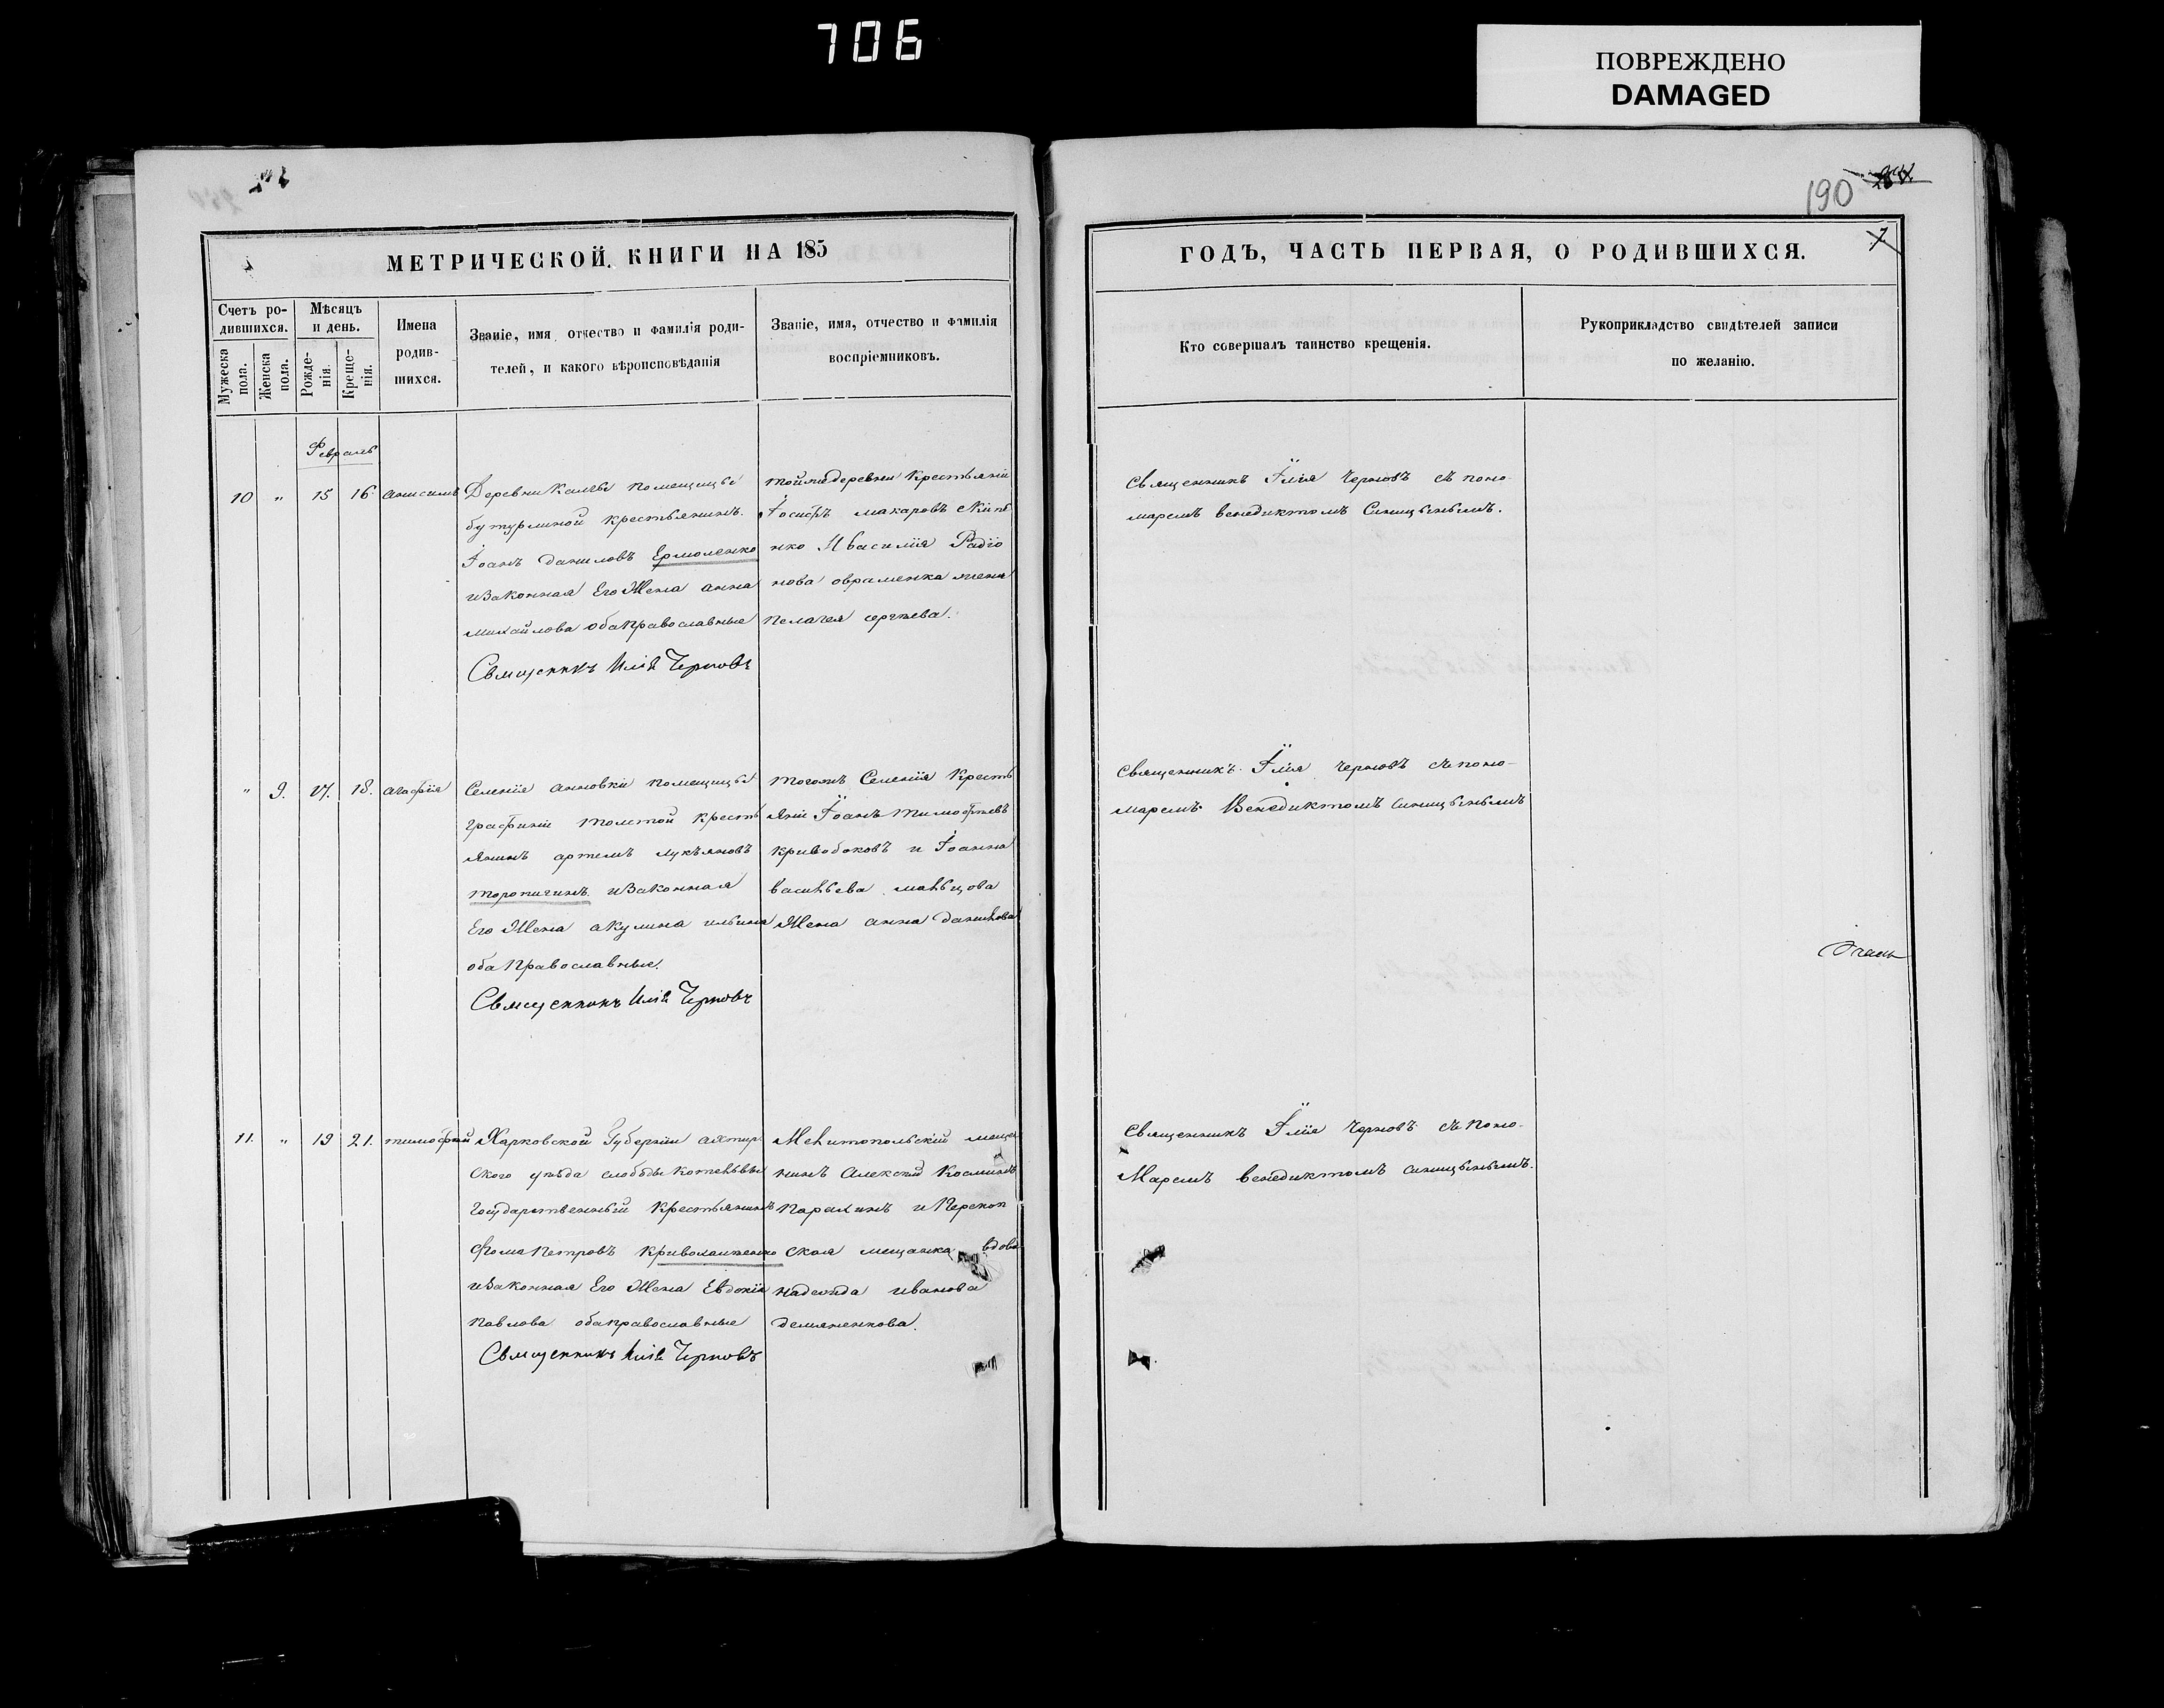 706
ПОВРЕЖДЕНО
DAMAGED
190
7
МЕТРИЧЕСКОЙ КНИГИ НА 185
ГОДЪ, ЧАСТЬ ПЕРВАЯ, О РОДИВШИХСЯ.
Счетъ ро-
дившихся.
Мужеска
пола.
Женска
пола.
Мѣсяцъ
и день.
Рожде-
нія.
Креще-
нія.
Имена
родив-
шихся.
Званіе, имя, отчество и фамилія роди-
телей, и какого вѣроисповѣданія
Званіе, имя, отчество и фамилія
воспріемниковъ.
Кто совершалъ таинство крещенія.
Рукоприкладство свидѣтелей записи
по желанію.
Февраль
10 " 15 16. анисимъ
Деревни помещицы
бутурлиной крестьянинъ.
Іоанъ даниловъ Ермоленко
изаконная Его Жена анна
михайлова оба православные
Священникъ Илія Черновъ
тойже деревни Крестьяни
Іосифъ макаровъ
нко И василия Радіо
нова овраменка жена
пелагея сергѣева.
Священникъ Іулія Черновъ съ поно-
маремъ венедиктомъ Синицынымъ.
" 9. 17. 18. агафія
Селенія анновки помещицы
графини толстой кресть
янинъ артемъ лукьяновъ
торопигинъ. изаконная
Его Жена акулина ильина
оба православные.
Священникъ Илія Черновъ
тогожъ Селенія Кресть
яни Іоанъ тимофѣевъ
кривобоковъ и Іоанна
васильева мальцова
Жена анна данилова
Священникъ Іулія Черновъ съ поно-
маремъ Венедиктомъ синицынымъ
11. " 19 21. тимофей
Харковской Губерніи ахтир
ского уѣзда слободы котельвы
Государственный Крестьянинъ
Фома Петровъ Криволапенко
изаконная Его Жена Евдокія
Павлова оба православные
Священникъ Илія Черновъ
Мелитопольскій меща
нинъ Алексей Косминъ
и Перекоп
ская мещанка вдова
надежда иванова
демяненкова.
Священникъ Іулія Черновъ съ Поно-
Маремъ венедиктомъ синицынымъ.